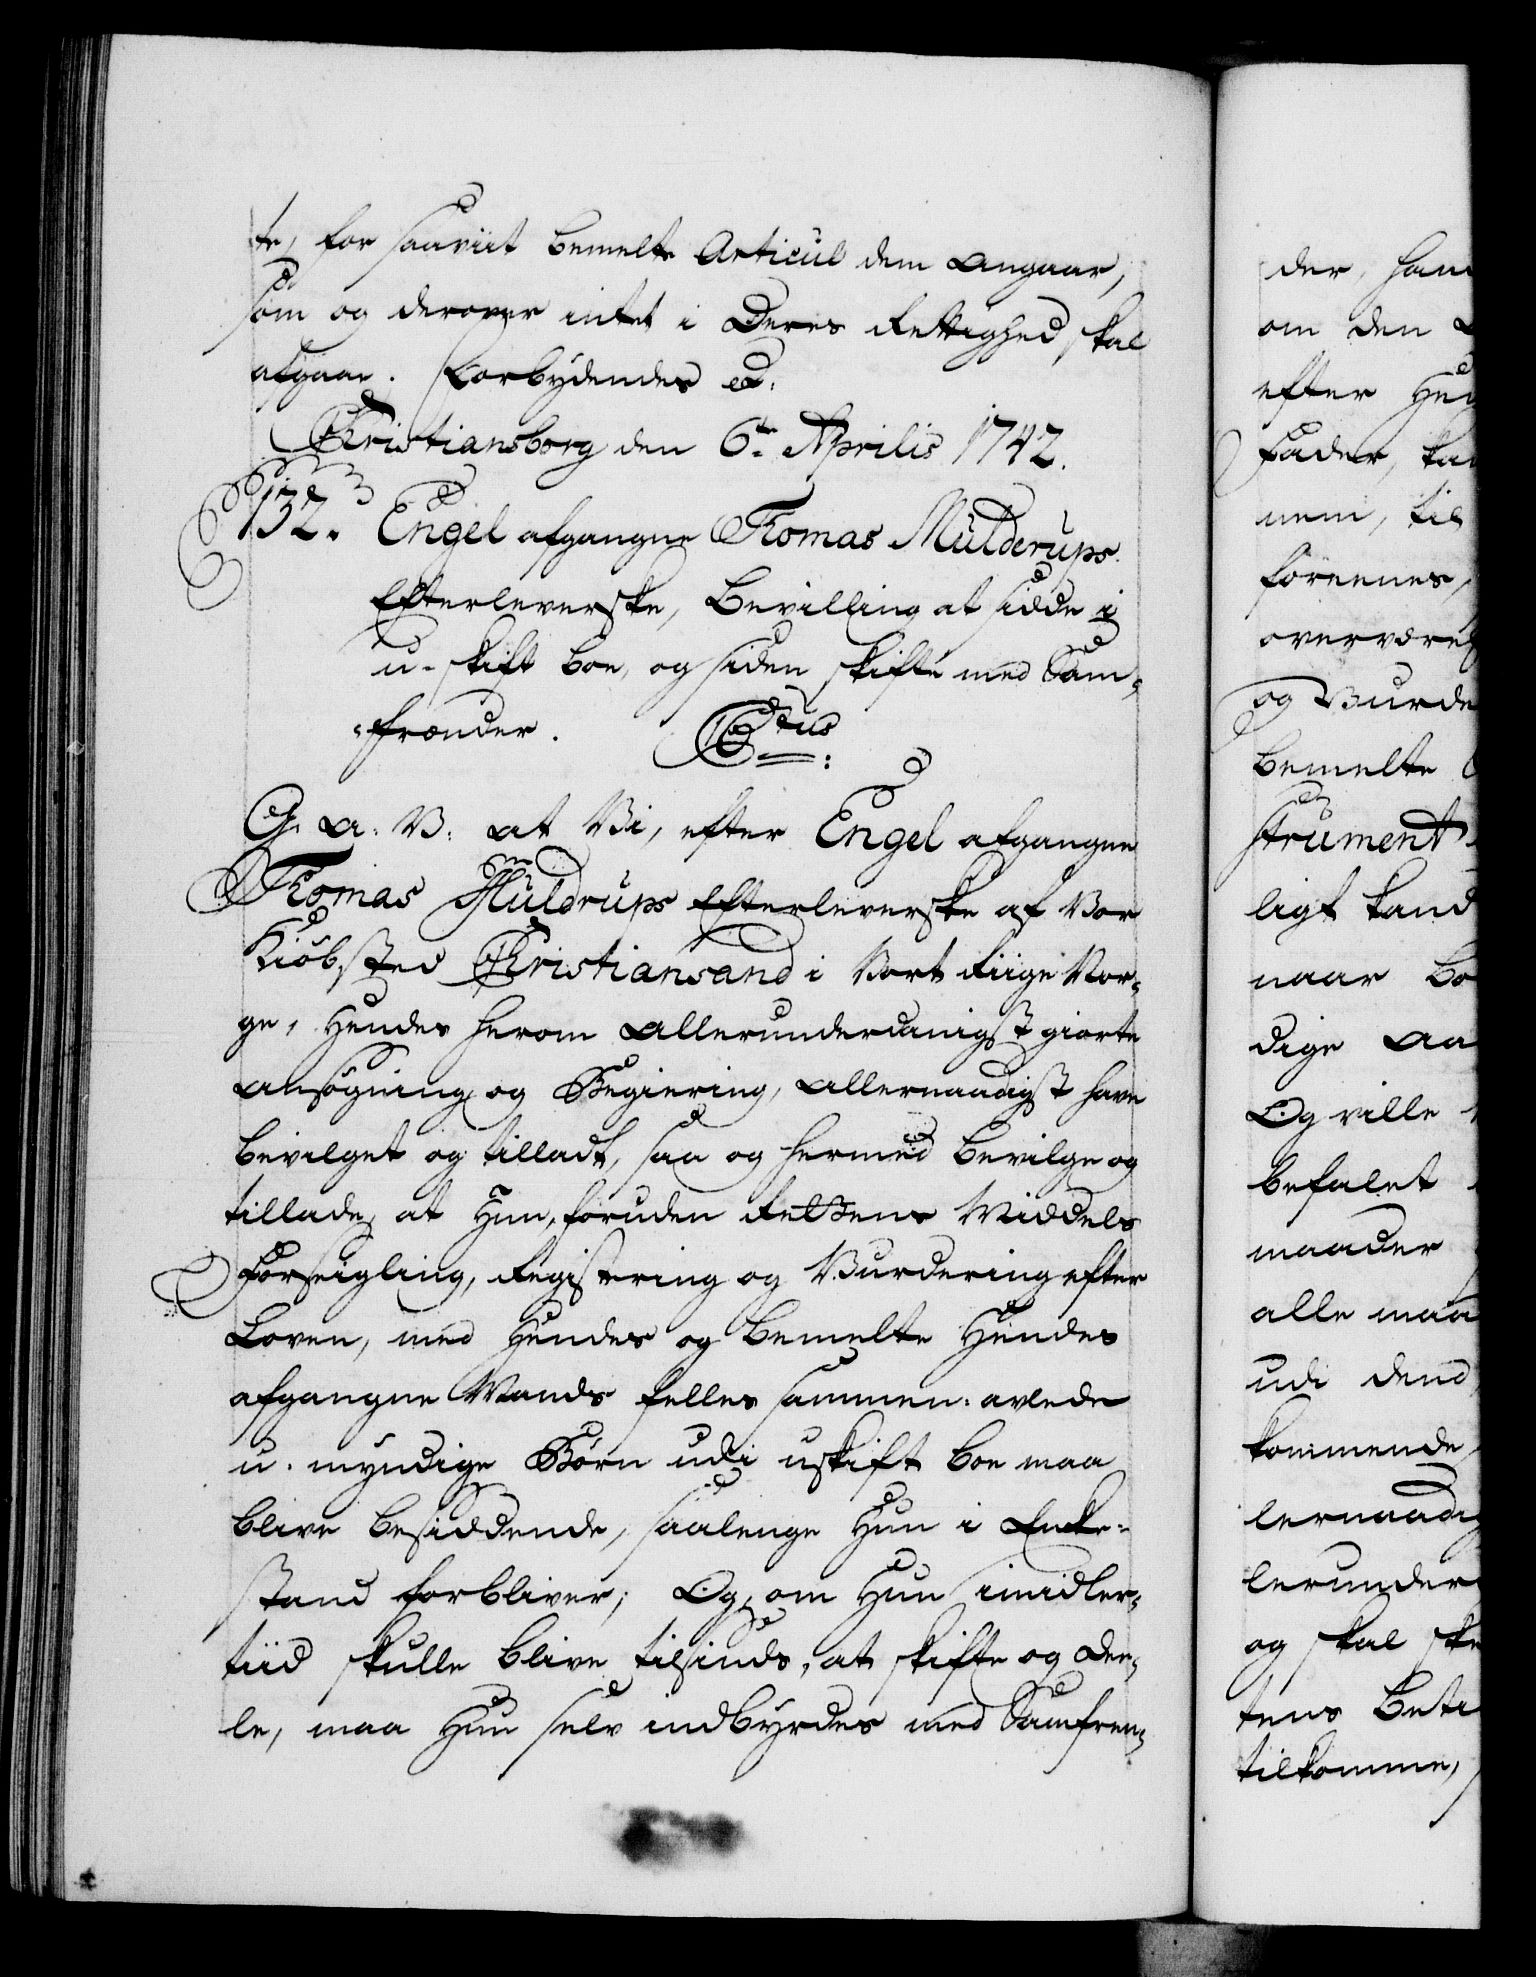 te, for saaviit bemelte Articul dem angaar,
som og derover intet i Deres Rettighed skal
afgaae. Forbydendes etc:
Christiansborg den 6te Aprilis 1742.
132. Engel afgangne Thomas Mulderups
Efterleverske, Bevilling at sidde i
u-skift boe, og siden skifte med Sam-
frænder.
G: A: V: at Vi, efter Engel afgangne
Thomas Muldrups Efterleverske af Vor
Kiøbsted Christiansand i Vort Riige Nor-
ge, Hendes herom allerunderdanigst giorte
ansøgning og Begiering, allernaadigst have
bevilget og tilladt, saa og hermed bevilge og
tillade, at Hun, foruden Rettens Middels
Forseigling, Registering og Vurdering efter
Loven, med Hendes og bemelte Hendes
afgangne Mands felles sammen-avlede
u-myndige Børn udi uskift boe maa
blive besiddende, saalenge Hun i Enke-
stand forbliver; Og, om Hun imidler-
tiid skulle blive tilsinds, at skifte og dee-
le, maa Hun selv indbyrdes med Samfren-
der, ham
om den
efter
Fader,
nem, til
foreenes,
overvære
og Vurde
bemelte
strument
ligt kand
naar bo
dige aa
Og ville
befalet
maader
alle maa
udi dend
kommende,
lernaadig
lerunder
og skal ske
tens beti
tilkomme,